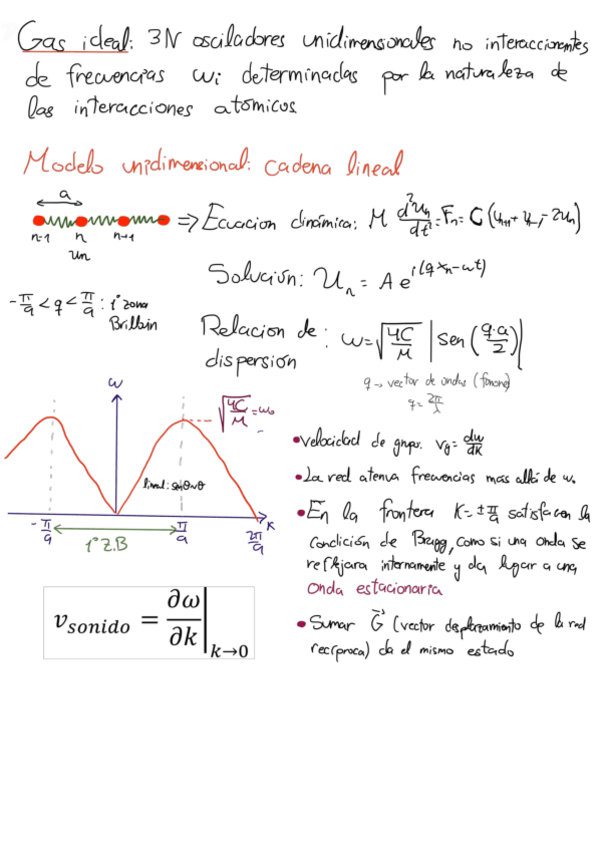 Gas ideal: 3N osciladores unidimensionales no interaccionantes
de frecuencias ωi determinadas por la naturaleza de
las interacciones atómicos
Modelo unidimensional: cadena lineal
a
n-1 n n+1
un
=> Ecuacion dinámica: M d²un/dt² = Fn = C(un+1 + un-1 - 2un)
Solución: Un = A e^i(qxn-ωt)
-π/a < q < π/a : 1ª zona
Brillouin
Relacion de : ω = √(4C/M) |sen(q·a/2)|
dispersión
q → vector de ondas (fonones)
q = 2π/λ
ω
√(4C/M) = ω₀
lineal: senθ≈θ
-π/a π/a 2π/a K
1ª Z.B
• velocidad de grupo: vg = dω/dK
• La red atenua frecuencias mas allá de ω.
• En la frontera K = ±π/a satisfacen la
condición de Bragg, como si una onda se
reflejara internamente y da lugar a una
onda estacionaria
v_sonido = ∂ω/∂k |k→0
• Sumar G⃗ (vector desplazamiento de la red
recíproca) da el mismo estado